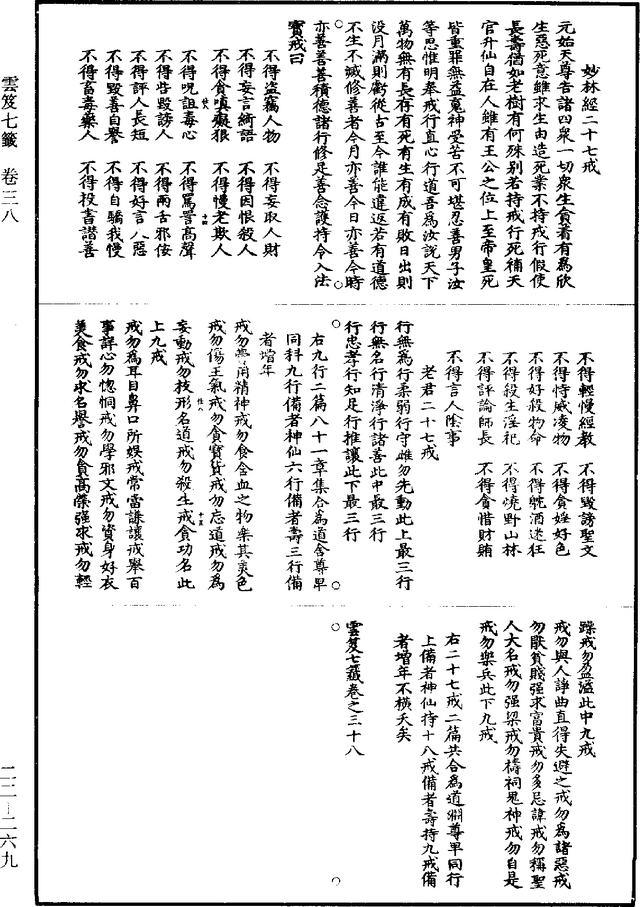 妙林經二十七戒
元始天尊告諸四衆一切衆生貪著有為欣
生惡死意雖求生由造死業不持戒行假使
長壽猶如老樹有何殊别若持戒行死補天
官升仙自在人雖有王公之位上至帝皇死
皆重罪無益魂神受苦不可堪忍善男子汝
等思惟明奉戒行直心行道吾為汝說天下
萬物無有長存有死有生有成有敗日出則
没月滿則虧從古至今誰能違返若有道德
不生不滅修善者今月亦善今日亦善今時
亦善善善積德諸行修是善念護持令入法
寶戒曰
不得盜竊人物 不得妄取人財
不得妄言綺語 不得因恨殺人
不得貪嗔癡狠 不得慢老欺人
不得呪詛毒心 不得罵詈高聲
不得呰毀謗人 不得兩舌邪佞
不得評人長短 不得好言人惡
不得毀善自譽 不得自驕我慢
不得畜毒藥人 不得投書譖善
不得輕慢經教 不得毀謗聖文
不得恃威凌物 不得貪婬好色
不得好殺物命 不得躭酒迷狂
不得殺生淫祀 不得燒野山林
不得評論師長 不得貪惜財賄
不得言人陰事
老君二十七戒
行無為行柔弱行守雌勿先動此上最三行
行無名行清淨行諸善此中最三行
行忠孝行知足行推讓此下最三行
右九行二篇八十一章集合為道舍尊卑
同科九行備者神仙六行備者壽三行備
者增年
戒勿費用精神戒勿食含血之物樂其美色
戒勿傷王氣戒勿貪寶貨戒勿忘道戒勿為
妄動戒勿枝形名道戒勿殺生戒貪功名此
上九戒
戒勿為耳目鼻口所娛戒常當謙讓戒舉百
事詳心勿惚恫戒勿學邪文戒勿資身好衣
美食戒勿求名譽戒勿貪高榮强求戒勿輕
躁戒勿盈溢此中九戒
戒勿與人諍曲直得失避之戒勿為諸惡戒
勿厭貧賤强求富貴戒勿多忌諱戒勿稱聖
人大名戒勿强梁戒勿禱祠鬼神戒勿自是
戒勿樂兵此下九戒
右二十七戒二篇共合為道淵尊卑同行
上備者神仙持十八戒備者壽持九戒備
者增年不横夭矣
雲笈七籤卷之三十八
雲笈七籤 卷三八
二二—二六九